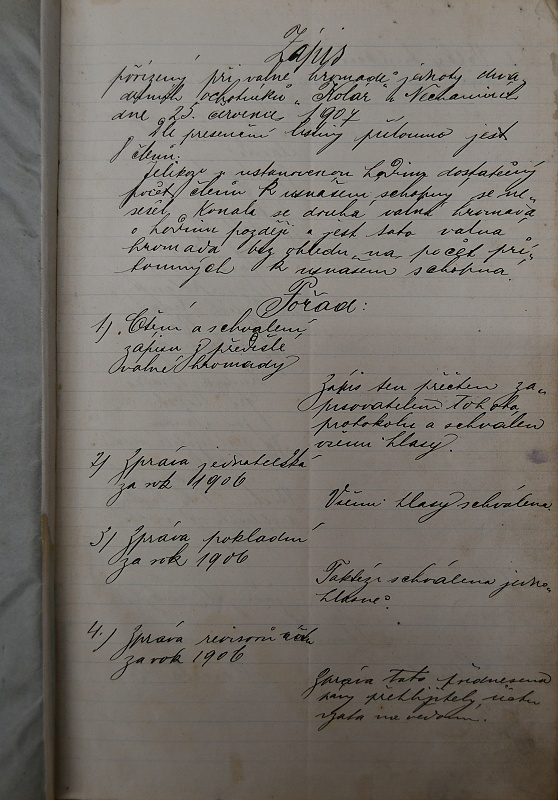 Zápis
pořízený při valné hromadě jednoty diva„
delních ochotníků „Kolár" v Nechanicích
dne 25. července 1907
Dle presenční listiny přítomno jest
8 členů.
Jelikož v ustanovenou hodinu dostatečný
počet členů k usnášení schopný se ne„
sešel, konala se druhá valná hromada
o hodinu později a jest tato valná
hromada bez ohledu na počet pří„
tomných k usnášení schopna.
Pořad:
1) Čtení a schválení
zápisu z předešlé
valné hromady
Zápis ten přečten za„
pisovatelem tohoto
protokolu a schválen
všemi hlasy.
2) Zpráva jednatelská
za rok 1906
Všemi hlasy schválena.
3) Zpráva pokladní
za rok 1906
Taktéž schválena jedno„
hlasně.
4.) Zpráva revisorů účtu
za rok 1906
Zpráva tato přednesena
pány přehlížiteli účtu
vzata na vědomí.